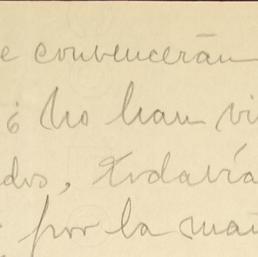 e convencerán
¿No han vi
dos, todavía
por la mañ